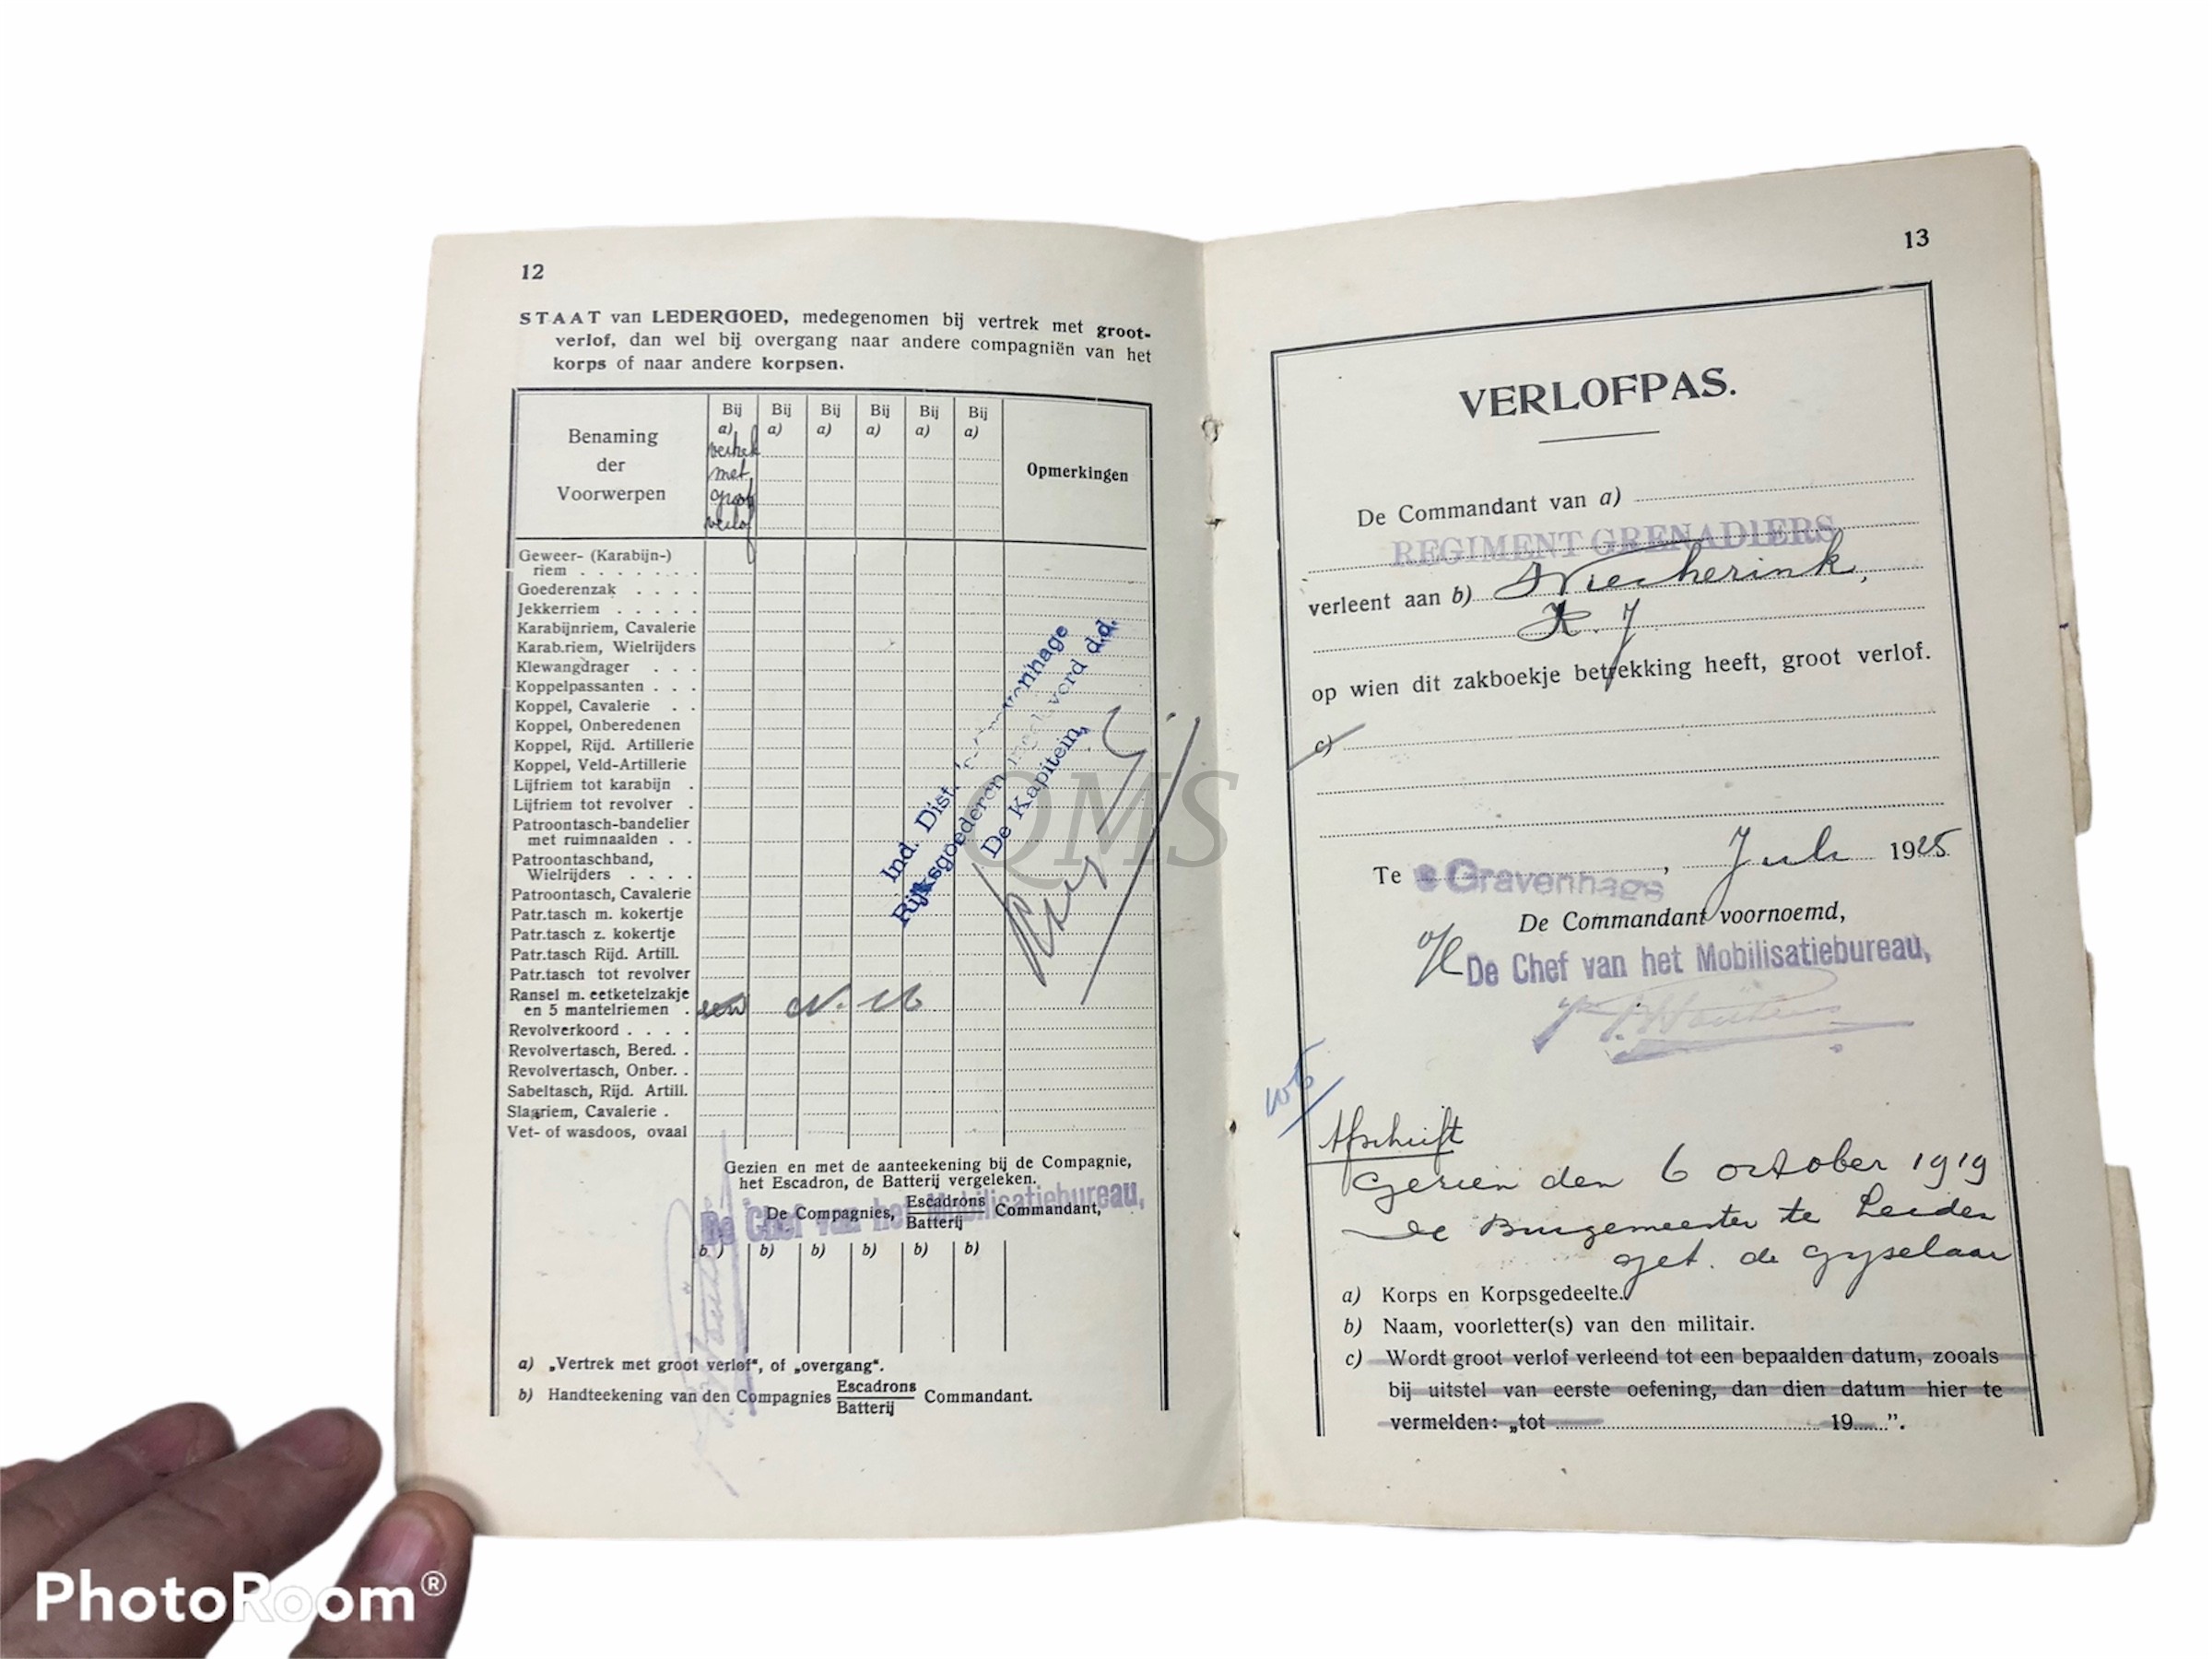 12
STAAT van LEDERGOED, medegenomen bij vertrek met groot-
verlof, dan wel bij overgang naar andere compagniën van het
korps of naar andere korpsen.
Benaming der Voorwerpen
Bij a) Bij a) Bij a) Bij a) Bij a) Bij a)
Opmerkingen
vertrek
met
groot
verlof
Geweer- (Karabijn-)
riem . . . . . . .
Goederenzak . . . .
Jekkerriem . . . . .
Karabijnriem, Cavalerie
Karab.riem, Wielrijders
Klewangdrager . . .
Koppelpassanten . . .
Koppel, Cavalerie . .
Koppel, Onberedenen
Koppel, Rijd. Artillerie
Koppel, Veld-Artillerie
Lijfriem tot karabijn .
Lijfriem tot revolver .
Patroontasch-bandelier
met ruimnaalden . .
Patroontaschband,
Wielrijders . . . .
Patroontasch, Cavalerie
Patr.tasch m. kokertje
Patr.tasch z. kokertje
Patr.tasch Rijd. Artill.
Patr.tasch tot revolver
Ransel m. eetketelzakje
en 5 mantelriemen .
Revolverkoord . . . .
Revolvertasch, Bered. .
Revolvertasch, Onber. .
Sabeltasch, Rijd. Artill.
Slagriem, Cavalerie .
Vet- of wasdoos, ovaal
Ind. Dist.
Rijksgoederen d.d.
De Kapitein,
Gezien en met de aanteekening bij de Compagnie,
het Escadron, de Batterij vergeleken.
De Compagnies, Escadrons Batterij Commandant,
De Chef van het Mobilisatiebureau,
b) b) b) b) b) b)
a) „Vertrek met groot verlof“, of „overgang“.
b) Handteekening van den Compagnies Escadrons Batterij Commandant.
13
VERLOFPAS.
De Commandant van a)
REGIMENT GRENADIERS
verleent aan b)
op wien dit zakboekje betrekking heeft, groot verlof.
c)
Te s Gravenhage, Juli 1925
De Commandant voornoemd,
De Chef van het Mobilisatiebureau,
Afschrift
Gezien den 6 october 1919
de Burgemeester te Leiden
get. de Gyselaar
a) Korps en Korpsgedeelte.
b) Naam, voorletter(s) van den militair.
c) Wordt groot verlof verleend tot een bepaalden datum, zooals
bij uitstel van eerste oefening, dan dien datum hier te
vermelden: „tot 19......”.
QMS
PhotoRoom®